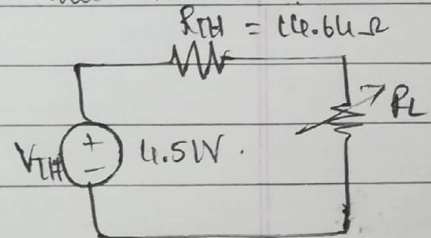 R_TH = 14.64Ω
R_L
V_TH + - 4.51V.